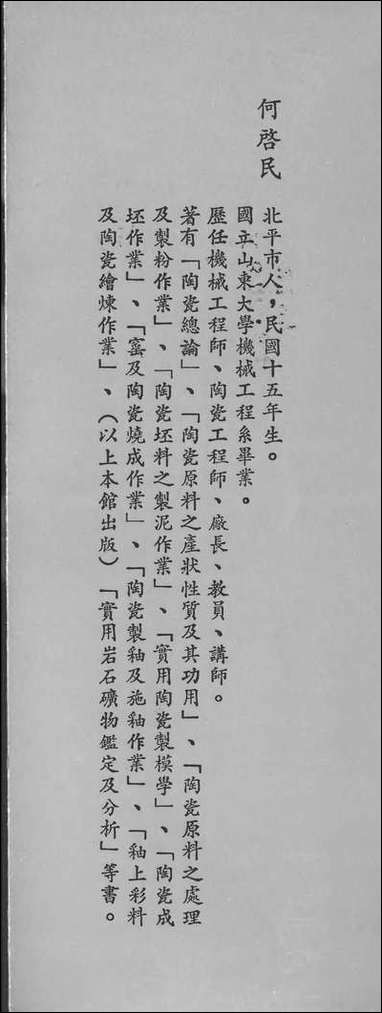 何啓民
北平市人，民國十五年生。
國立山東大學機械工程系畢業。
歷任機械工程師、陶瓷工程師、廠長、教員、講師。
著有「陶瓷總論」、「陶瓷原料之產狀性質及其功用」、「陶瓷原料之處理
及製粉作業」、「陶瓷坯料之製泥作業」、「實用陶瓷製模學」、「陶瓷成
坯作業」、「窰及陶瓷燒成作業」、「陶瓷製釉及施釉作業」、「釉上彩料
及陶瓷繪煉作業」、（以上本館出版）「實用岩石礦物鑑定及分析」等書。